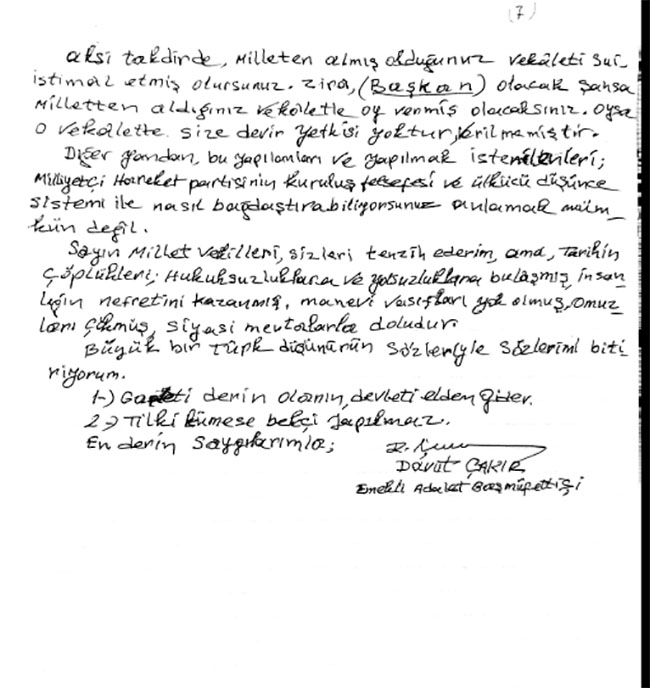 (7)
aksi takdirde, Milleten almış olduğunuz vekâleti sui-
istimal etmiş olursunuz. Zira, (Başkan) olacak şahsa
Milletten aldığınız vekâletle oy vermiş olacaksınız. Oysa
o vekâlette size devir yetkisi yoktur, verilmemiştir.
Diğer yandan, bu yapılanları ve yapılmak istenilenleri;
Milliyetçi Hareket partisinin kuruluş felsefesi ve ülkücü düşünce
sistemi ile nasıl bağdaştırabiliyorsunuz anlamak müm_
kün değil.
Sayın Millet Vekilleri, sizleri tenzih ederim, ama, Tarihin
çöplükleri; Hukuksuzluklara ve yolsuzluklara bulaşmış, insan_
lığın nefretini kazanmış, manevi vasıfları yok olmuş, omuz_
ları çökmüş, siyasi mevtalarla doludur.
Büyük bir Türk düşünürün sözleriyle sözlerimi biti
riyorum.
1-) Gafleti derin olanın, devleti elden gider.
2-) Tilki kümese bekçi yapılmaz.
En derin Saygılarımla;
Davut ÇAKIR
Emekli Adalet Başmüfettişi